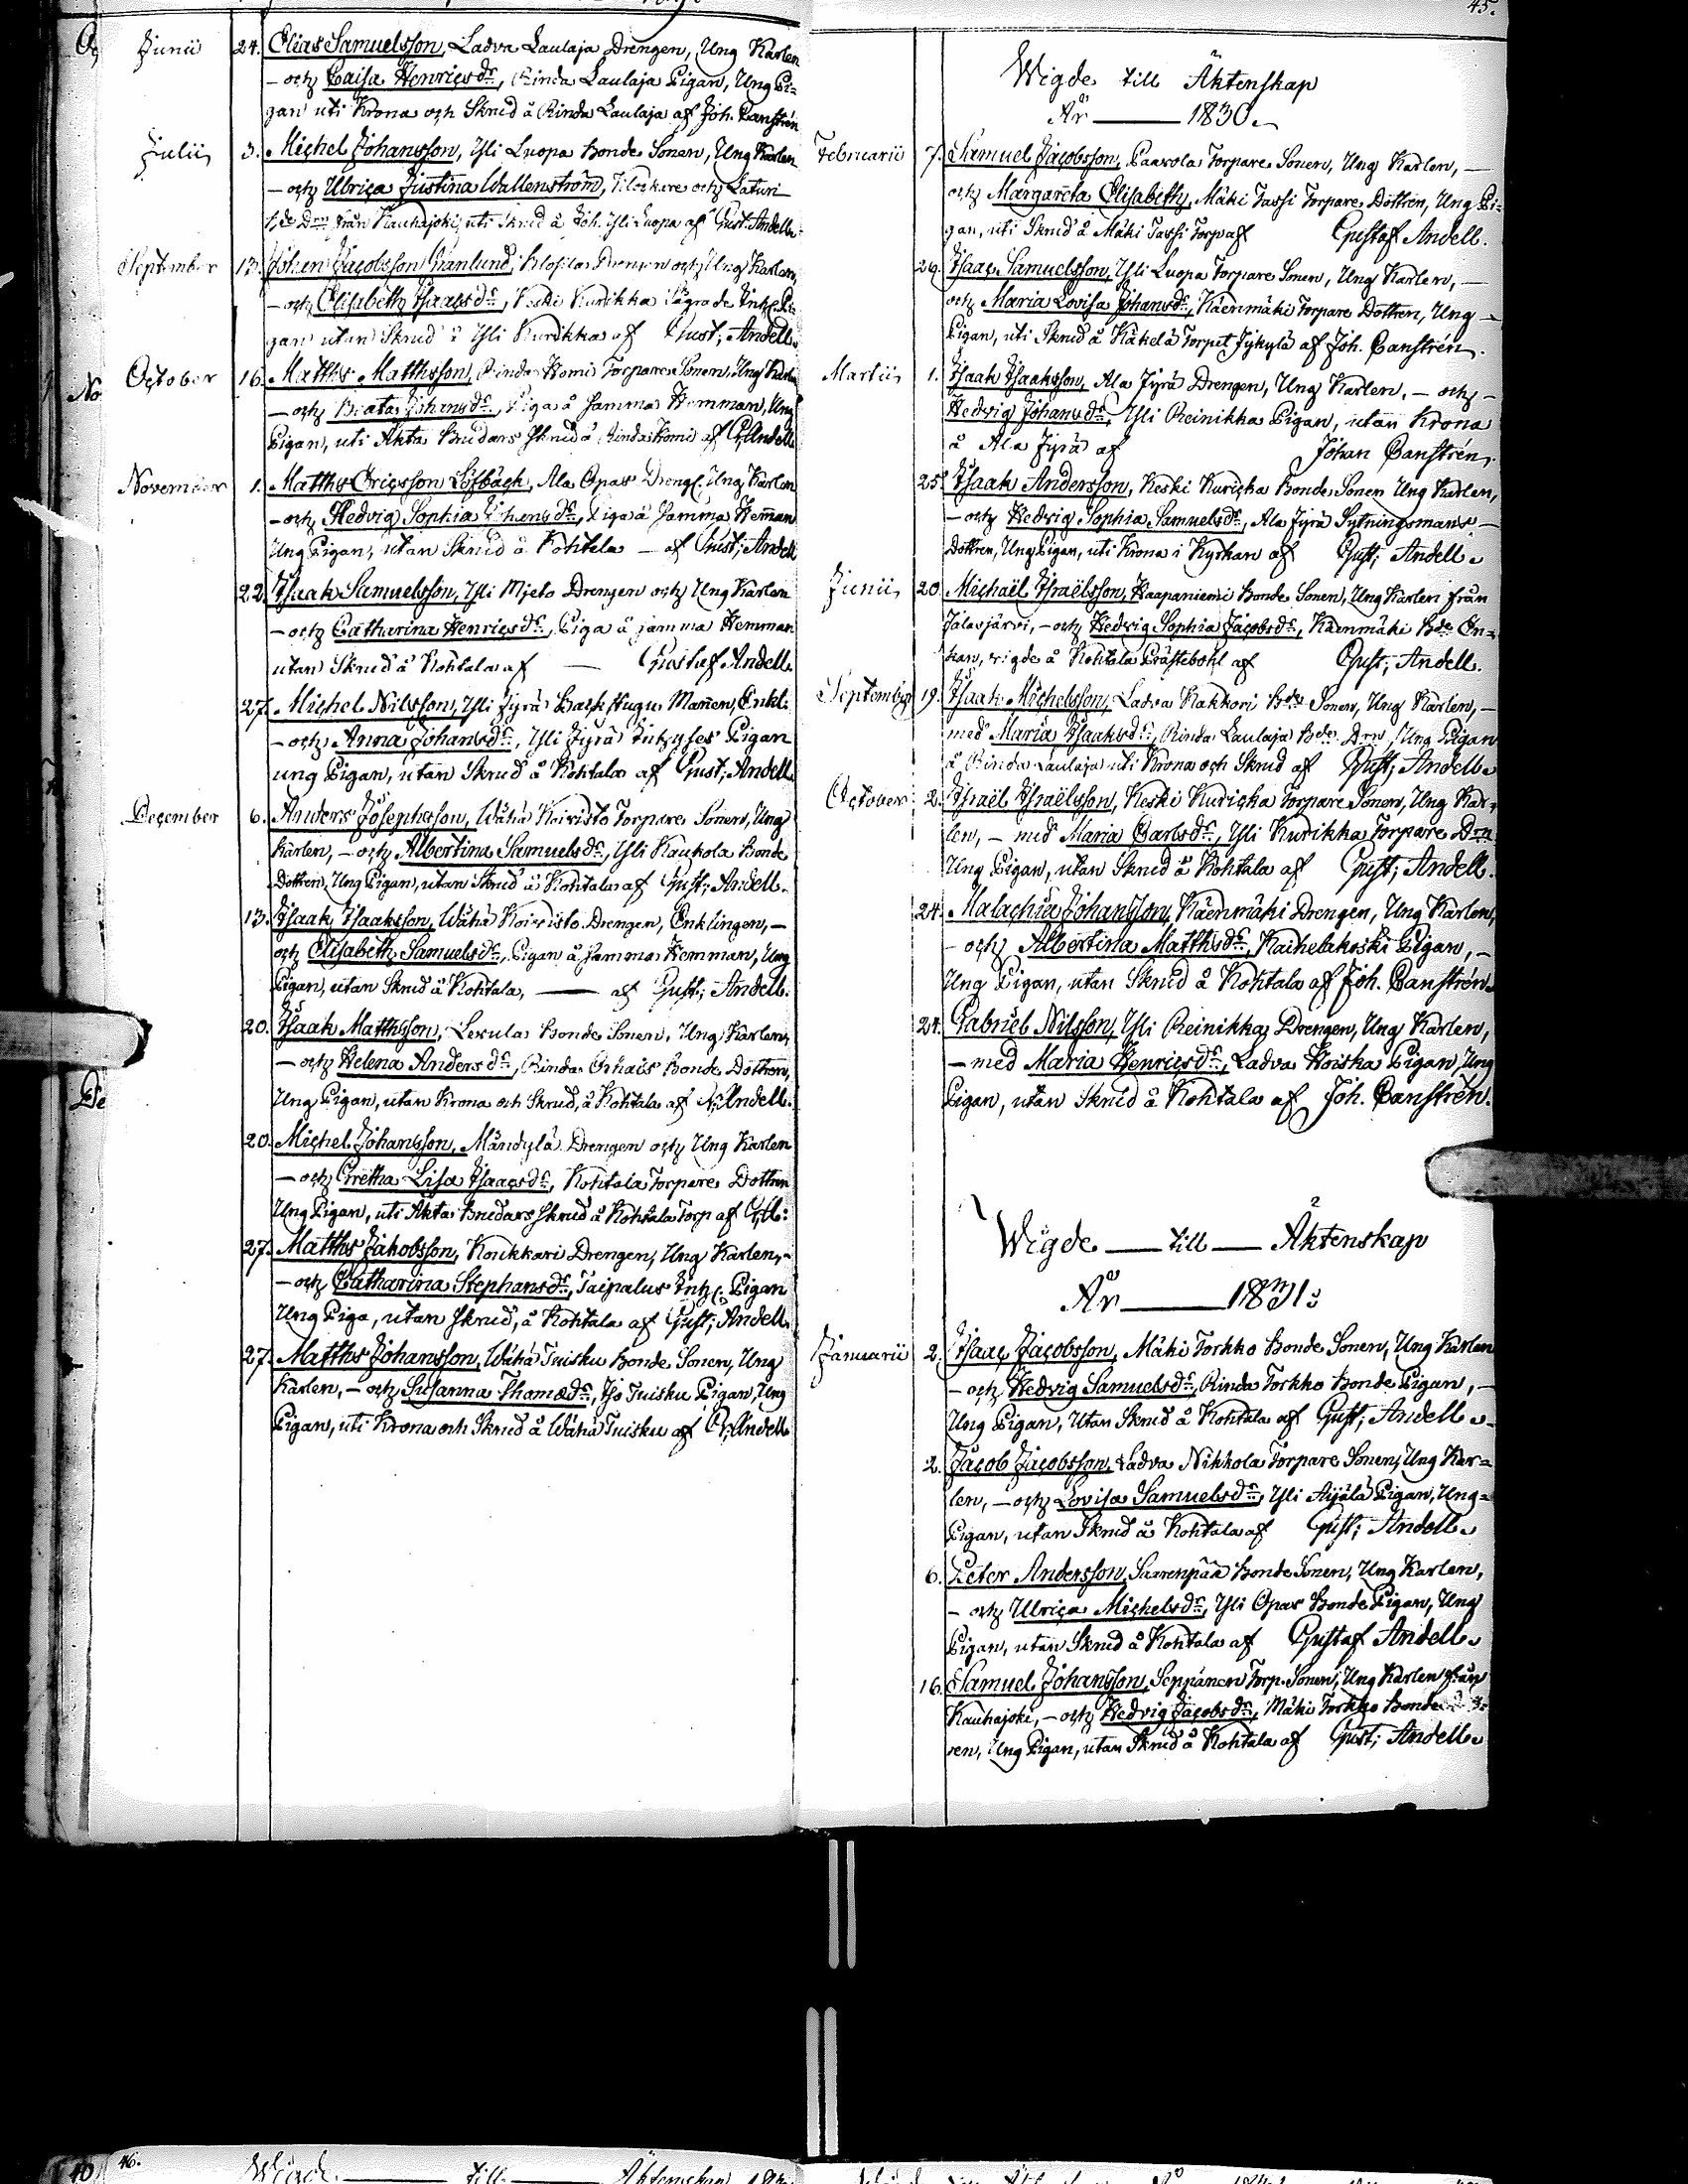 Junii 24. Elias Samuelsson, Ladva Laulaja Drengen, Ung Karlen
- och Caisa Henricsdr, Rinda Laulaja Pigan, Ung Pi=
gan uti Krona och Skrud å Rinda Laulaja af Joh. Canstrén
Julii 3. Michel Johansson, Yli Luopa Bonde Sonen, Ung Karlen
- och Ulrica Justina Wallenström, Klockare och
Drn från Kauhajoki, uti Skrud å Joh. Yli Luopa af Gust. Andell
September 13. Johan Jacobsson Granlund, Drengen och Ung Karlen
- och Elisabeth Isaacsdr, Keski Kurikka Pi=
gan utan Skrud å Yli Kurikka af Gust; Andell.
October 16. Matths Matthsson, Rinda Komi Torpare Sonen, Ung Karlen
- och Beata Johansdr, Piga å samma Hemman, Ung
Pigan, uti Äkta Brudars Skrud å Rinda Komi af G; Andell
November 1. Matths Ericsson Löfbäck, Ala Opas Dreng; Ung Karlen
- och Hedvig Sophia Johansdr, Piga å samma Hemman
Ung Pigan, utan Skrud å Kohtala - af Gust; Andell
22. Isaak Samuelsson, Yli Mjeto Drengen och Ung Karlen
- och Catharina Henricsdr, Piga å samma Hemman
utan Skrud å Kohtala af — Gustaf Andell.
27. Michel Nilsson, Yli Jyrä Back Hugu Mannen, Enkl:
- och Anna Johansdr, Yli Jyrä Inhyses Pigan
ung Pigan, utan Skrud å Kohtala af Gust; Andell.
December 6. Anders Josephsson, Wähä Koivisto Torpare Sonen, Ung
Karlen, - och Albertina Samuelsdr, Yli Kaukola Bonde
Dottren, Ung Pigan, utan Skrud å Kohtala af Gust; Andell.
13. Isaak Isaaksson, Wähä Koivisto Drengen, Enklingen, -
och Elisabeth Samuelsdr, Pigan å samma Hemman, Ung
Pigan, utan Skrud å Kohtala, — af Gust; Andell.
20. Isaak Matthsson, Lexula Bonde Sonen, Ung Karlen,
- och Helena Andersdr, Rinda Bonde Dottren,
Ung Pigan, utan Krona och Skrud, å Kohtala af Andell.
20. Michel Johansson, Mändylä Drengen och Ung Karlen
- och Gretha Lisa Isaacsdr, Kohtala Torpare Dottren
Ung Pigan, uti Äkta Brudars Skrud å Kohtala Torp af
27. Matths Jakobsson, Koukkari Drengen, Ung Karlen, -
- och Catharina Stephansdr, Taipalus Inh: Pigan
Ung Piga, utan Skrud, å Kohtala af Gust; Andell.
27. Matths Johansson, Wähä Tuisku Bonde Sonen, Ung
Karlen, - och Susanna Thomædr, Iso Tuisku Pigan, Ung
Pigan, uti Krona och Skrud å Wähä Tuisku af G; Andell
45.
Wigde till Äktenskap
År — 1830.
Februarii 7. Samuel Jacobsson, Paavola Torpare Sonen, Ung Karlen, -
och Margareta Elisabeth, Mäki Jassi Torpare Dottren, Ung Pi=
gan, uti Skrud å Mäki Jassi Torp af Gustaf Andell.
24. Isaac Samuelsson, Yli Luopa Torpare Sonen, Ung Karlen, -
och Maria Lovisa Johansdr, Käenmäki Torpare Dottren, Ung -
Pigan, uti Skrud å Käkelä Torpet Jykylä af Joh. Canstrén.
Martii 1. Isaak Isaaksson, Ala Jyrä Drengen, Ung Karlen, - och -
Hedvig Johansdr, Yli Reinikka Pigan, utan Krona
å Ala Jyrä af Johan Canstrén.
25. Isaak Andersson, Keski Kuricka Bonde Sonen Ung Karlen,
- och Hedvig Sophia Samuelsdr, Ala Jyrä Sytningsmans -
Dottren, Ung Pigan, uti Krona i Kyrkan af Gust; Andell.
Junii 20. Michaël Israëlsson, Haapaniemi Bonde Sonen, Ung Karlen från
Jalasjärvi, - och Hedvig Sophia Jacobsdr, Käenmäki Bde En=
kan, vigde å Kohtala Prästebohl af Gust; Andell.
September 19. Isaak Michelsson, Ladva Kakkori Bde Sonen, Ung Karlen, -
med Maria Isaaksdr, Rinda Laulaja Bde Drn, Ung Pigan
å Rinda Laulaja uti Krona och Skrud af Gust; Andell.
October 2. Israël Israëlsson, Keski Kuricka Torpare Sonen, Ung Kar=
len, - med Maria Carlsdr, Yli Kurikka Torpare Drn
Ung Pigan, utan Skrud å Kohtala af Gust; Andell.
24. Malachia Johansson, Käenmäki Drengen, Ung Karlen,
- och Albertina Matthsdr, Kaihelakoski Pigan, -
Ung Pigan, utan Skrud å Kohtala af Joh. Canstrén.
24. Gabriel Nilsson, Yli Reinikka Drengen, Ung Karlen,
- med Maria Henricsdr, Ladva Koiska Pigan, Ung
Pigan, utan Skrud å Kohtala af Joh. Canstrén.
Wigde — till — Äktenskap
År — 1831:
Januarii 2. Isaac Jacobsson, Mäki Torkko Bonde Sonen, Ung Karlen
- och Hedvig Samuelsdr, Rinda Torkko Bonde Pigan, -
Ung Pigan, Utan Skrud å Kohtala af Gust; Andell.
2. Jacob Jacobsson, Ladva Nikkola Torpare Sonen, Ung Kar=
len, - och Lovisa Samuelsdr, Yli Äijälä Pigan, Ung=
Pigan, utan Skrud å Kohtala af Gust; Andell.
6. Peter Andersson, Saarenpää Bonde Sonen, Ung Karlen,
- och Ulrica Michelsdr, Yli Opas Bonde Pigan, Ung
Pigan, utan Skrud å Kohtala af Gustaf Andell.
16. Samuel Johansson, Seppänen Torp. Sonen, Ung Karlen från
Kauhajoki, - och Hedvig Jacobsdr, Mäki Torkko Bonde
ren, Ung Pigan, utan Skrud å Kohtala af Gust; Andell.
46.
Wigde — till — Äktenskap